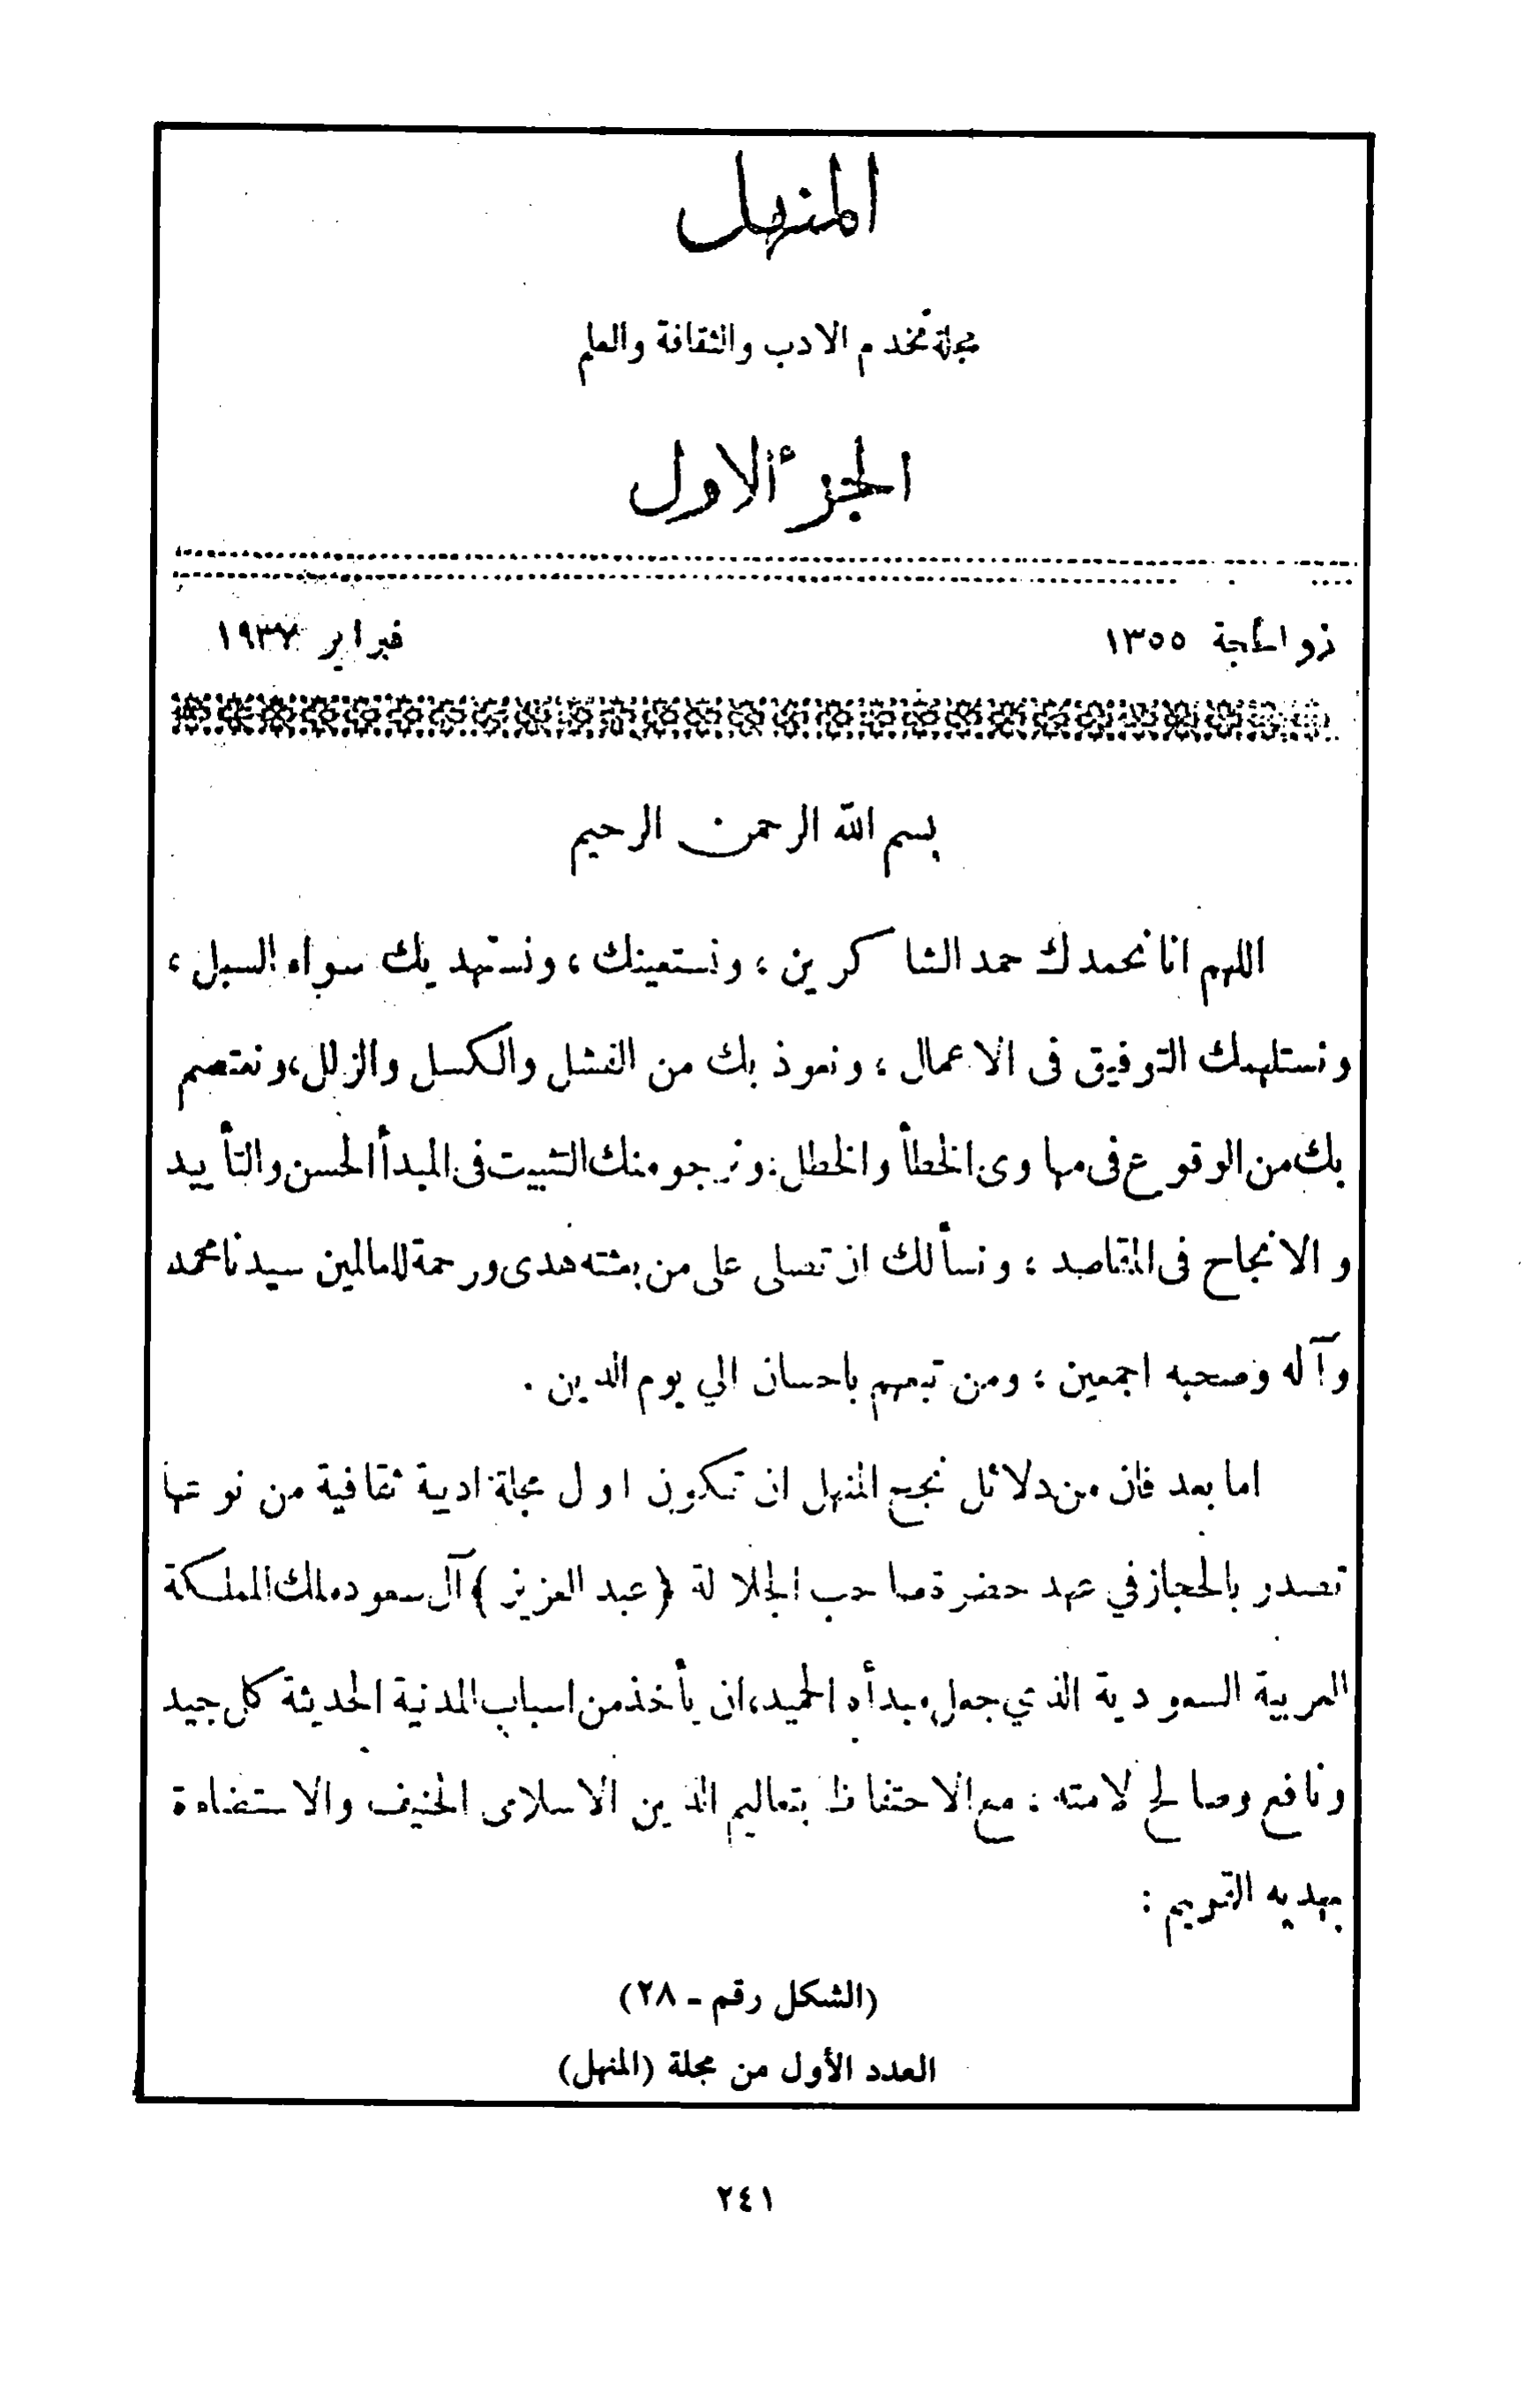 المنهل
مجلة تخدم الادب والثقافة والعلم
الجزء الاول
ذو الحجة ١٣٥٥
فبراير ١٩٣٧
بسم الله الرحمن الرحيم
اللهم انا نحمدك حمد الشاكرين ، ونستعينك ، ونستهديك سواء السبل ،
ونستلهمك التوفيق فى الاعمال ، ونعوذ بك من الفشل والكسل والزلل، ونعتصم
بك من الوقوع فى مهاوى الخطأ والخطل : ونرجو منك التثبيت فى المبدأ الحسن والتأييد
والانجاح فى المقاصد ، ونسألك ان تصلى على من بعثته هدى ورحمة للعالمين سيدنا محمد
وآله وصحبه اجمعين ، ومن تبعهم باحسان الي يوم الدين .
اما بعد فان من دلائل نجح المنهل ان تكون اول مجلة ادبية ثقافية من نوعها
تصدر بالحجاز في عهد حضرة صاحب الجلالة (عبد العزيز) آل سعود ملك المملكة
العربية السعودية الذي جعل مبدأه الحميد، ان يأخذ من اسباب المدنية الحديثة كل جيد
ونافع وصالح لامته : مع الاحتفاظ بتعاليم الدين الاسلامى الحنيف والاستضاءة
بهديه القويم :
(الشكل رقم - ٢٨)
العدد الأول من مجلة (المنهل)
٢٤١